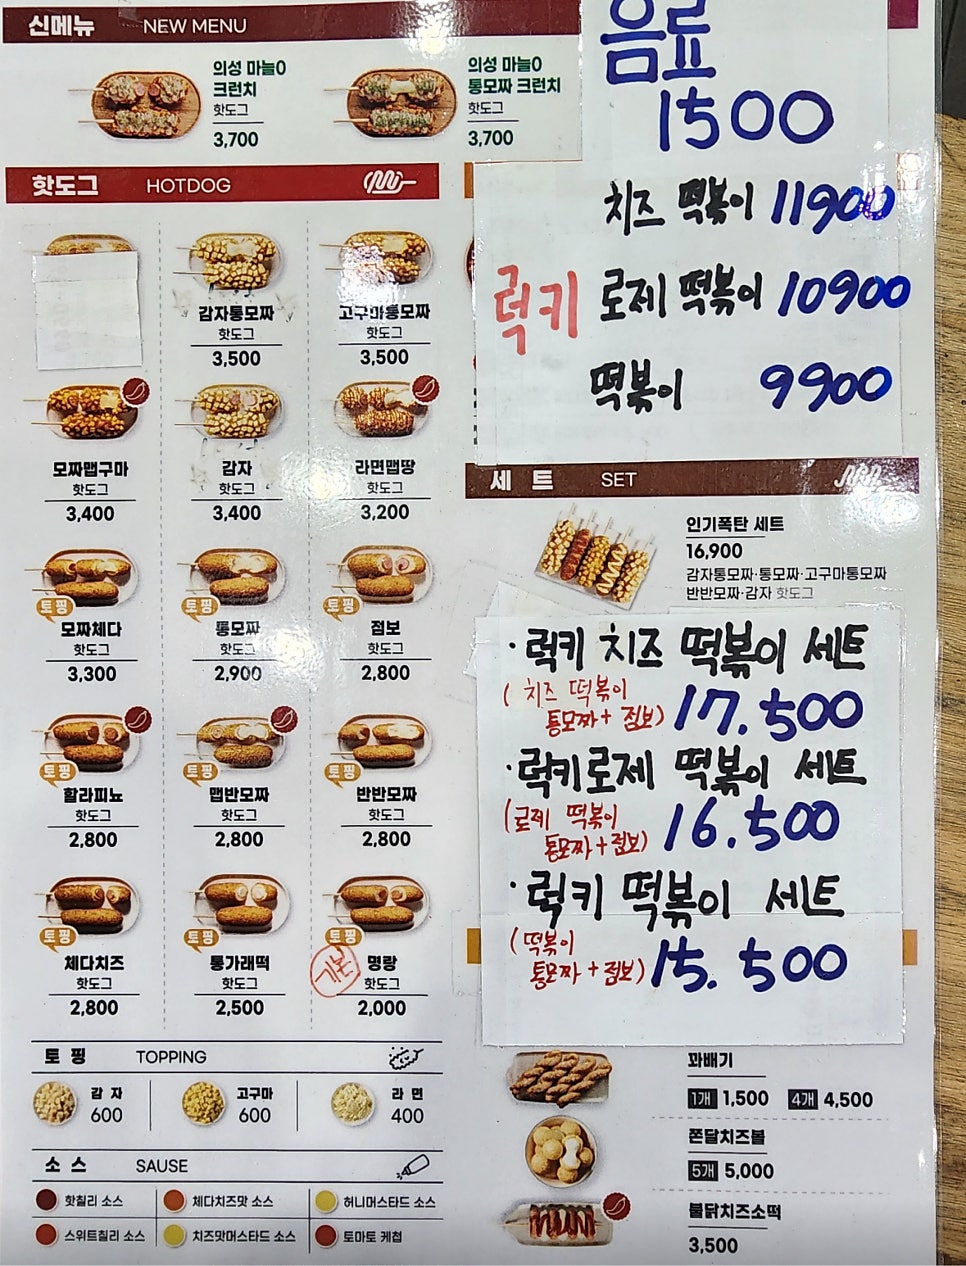 신메뉴 NEW MENU
의성 마늘0
크런치
핫도그
3,700
의성 마늘0
통모짜 크런치
핫도그
3,700
음료
1500
핫도그 HOTDOG
감자통모짜
핫도그
3,500
고구마통모짜
핫도그
3,500
모짜맵구마
핫도그
3,400
감자
핫도그
3,400
라면맵땅
핫도그
3,200
토핑
모짜체다
핫도그
3,300
토핑
통모짜
핫도그
2,900
토핑
점보
핫도그
2,800
토핑
할라피뇨
핫도그
2,800
토핑
맵반모짜
핫도그
2,800
토핑
반반모짜
핫도그
2,800
토핑
체다치즈
핫도그
2,800
토핑
통가래떡
핫도그
2,500
토핑
기본
명랑
핫도그
2,000
토핑 TOPPING
감자
600
고구마
600
라면
400
소스 SAUSE
핫칠리 소스
체다치즈맛 소스
허니머스타드 소스
스위트칠리 소스
치즈맛머스타드 소스
토마토 케첩
치즈 떡볶이 11900
럭키 로제 떡볶이 10900
떡볶이 9900
세트 SET
인기폭탄 세트
16,900
감자통모짜·통모짜·고구마통모짜
반반모짜·감자 핫도그
·럭키 치즈 떡볶이 세트
(치즈 떡볶이
통모짜+점보) 17.500
·럭키로제 떡볶이 세트
(로제 떡볶이
통모짜+점보) 16.500
·럭키 떡볶이 세트
(떡볶이
통모짜+점보) 15.500
꽈배기
1개 1,500 4개 4,500
쫀달치즈볼
5개 5,000
불닭치즈소떡
3,500